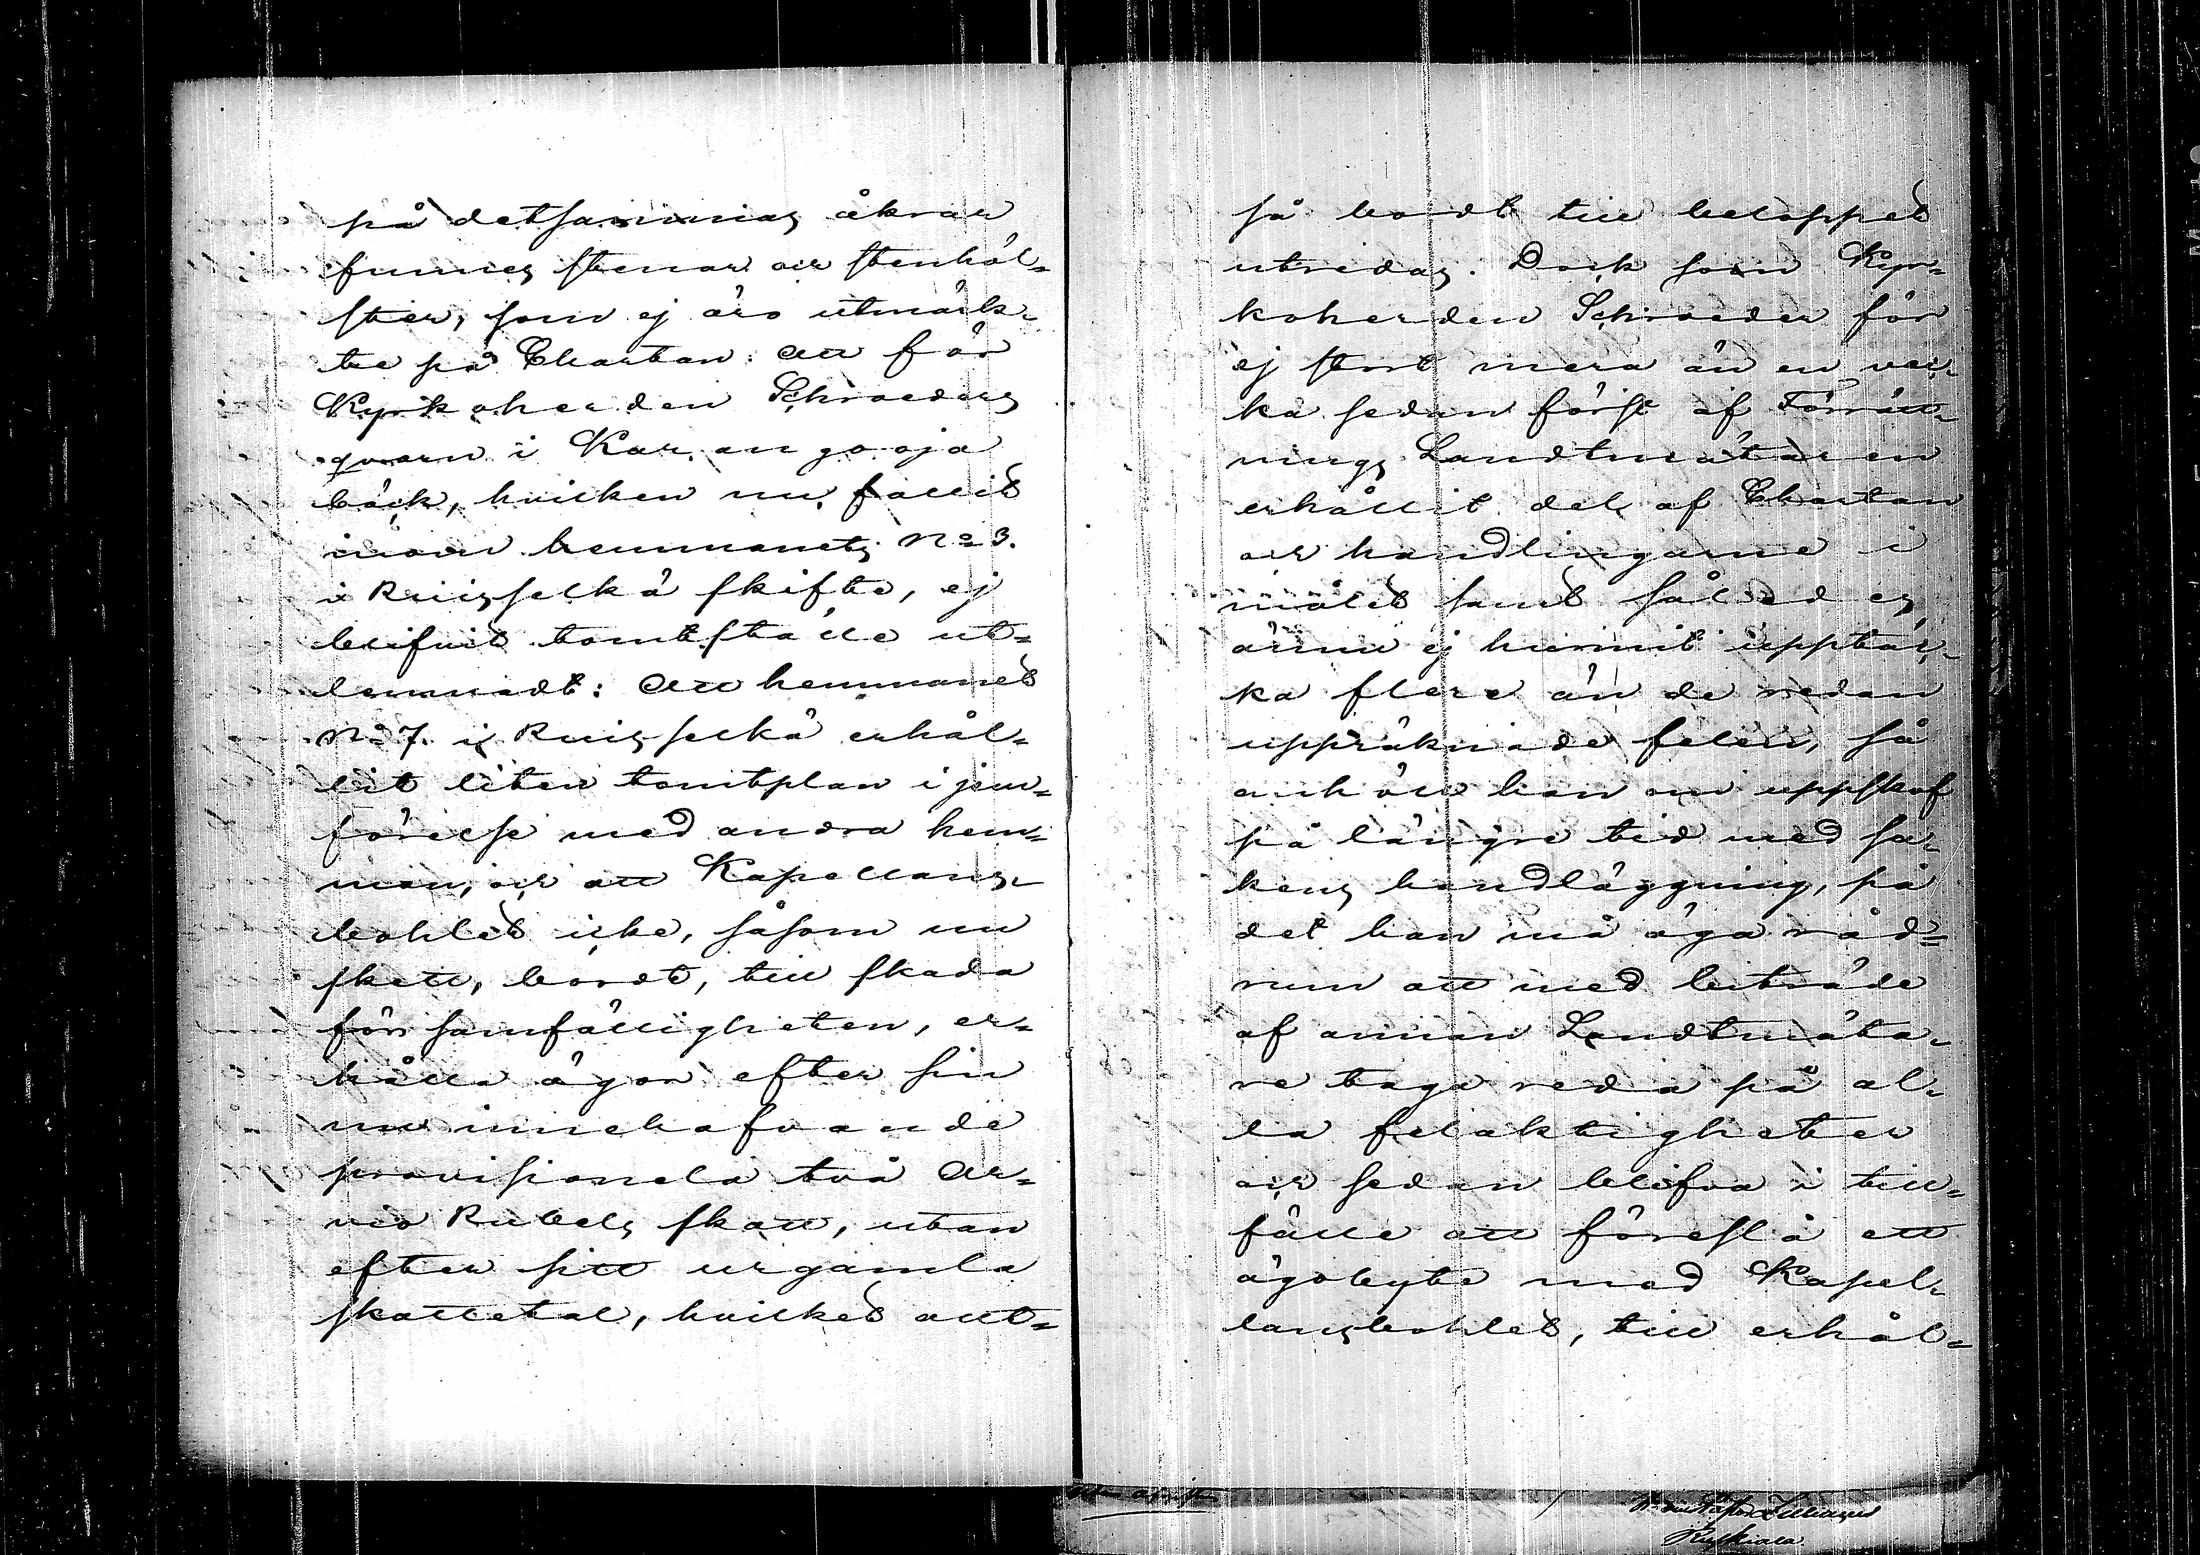 på detsammas åkrar
finnes stenar och stenhål-
ster, som ej äro utmärk-
te på Chartan: att för
Kyrkoherden Schroeders
qvarn i Kar.angonoja
bäck, hvilken nu fallit
inom hemmanets No 3.
i Ruisselkä skifte, ej
blifvit tomtställe ut-
lemnadt: att hemmanet
No 7. i Ruisselkä erhål-
lit liten tomtplan i jem-
förelse med andra hem-
man, och att Kapellans-
bohlet icke, såsom nu
skett, bordt, till skada
för samfälligheten, er-
hålla ägor efter sin
nu innehafvande
provisionela två Ar-
vio Rubels skatt, utan
efter sitt urgamla
skattetal, hvilket allt-
så bordt till beloppet
utredas. Dock som Kyr-
koherden Schroeder för
ej stort mera än en vec-
ka sedan först af Förrätt-
nings Landtmätaren
erhållit del af Chartan
och handlingarne i
målet samt således
ännu ej hunnit upptäc-
ka flere än de redan
uppräknade felen, så
anhöll han om uppskof
på längre tid med sa-
kens handläggning, på
det han må äga råd-
rum att med biträde
af annan Landtmäta-
re taga reda på al-
la felaktigheter
och sedan blifva i till-
fälle att föreslå ett
ägobyte med Kapel-
lansbohlet, till erhål-
Ruskiala